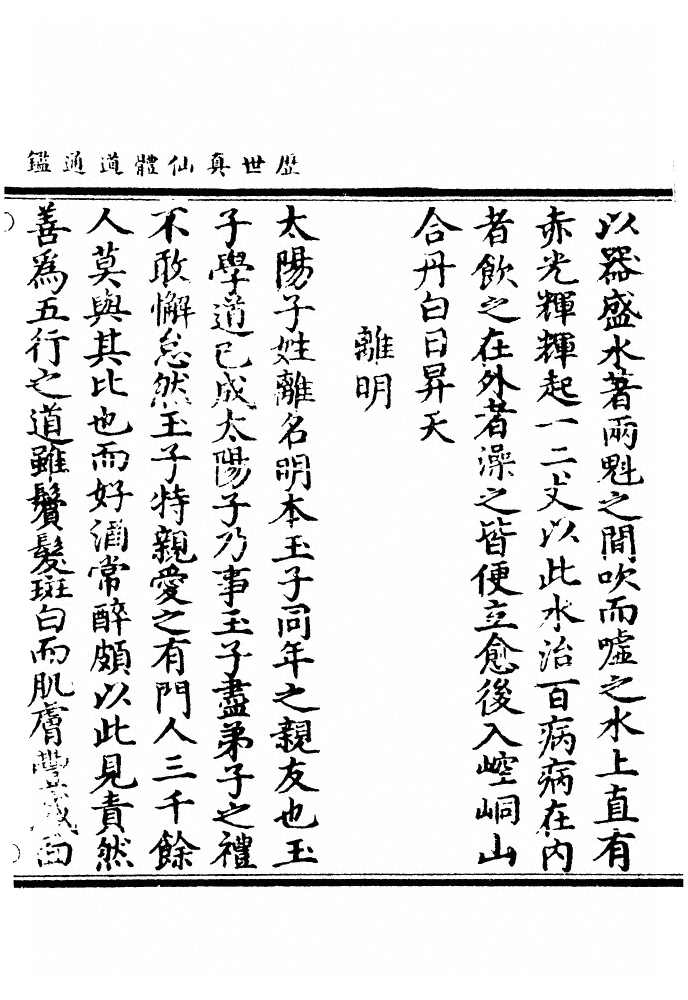 歷世真仙體道通鑑
以器盛水著兩魁之間吹而噓之水上直有
赤光輝輝起一二丈以此水治百病病在內
者飲之在外者澡之皆便立愈後入崆峒山
合丹白日昇天
離明
太陽子姓離名明本玉子同年之親友也玉
子學道已成太陽子乃事玉子盡弟子之禮
不敢懈怠然玉子特親愛之有門人三千餘
人莫與其比也而好酒常醉頗以此見責然
善為五行之道雖鬢髮斑白而肌膚豐盛面